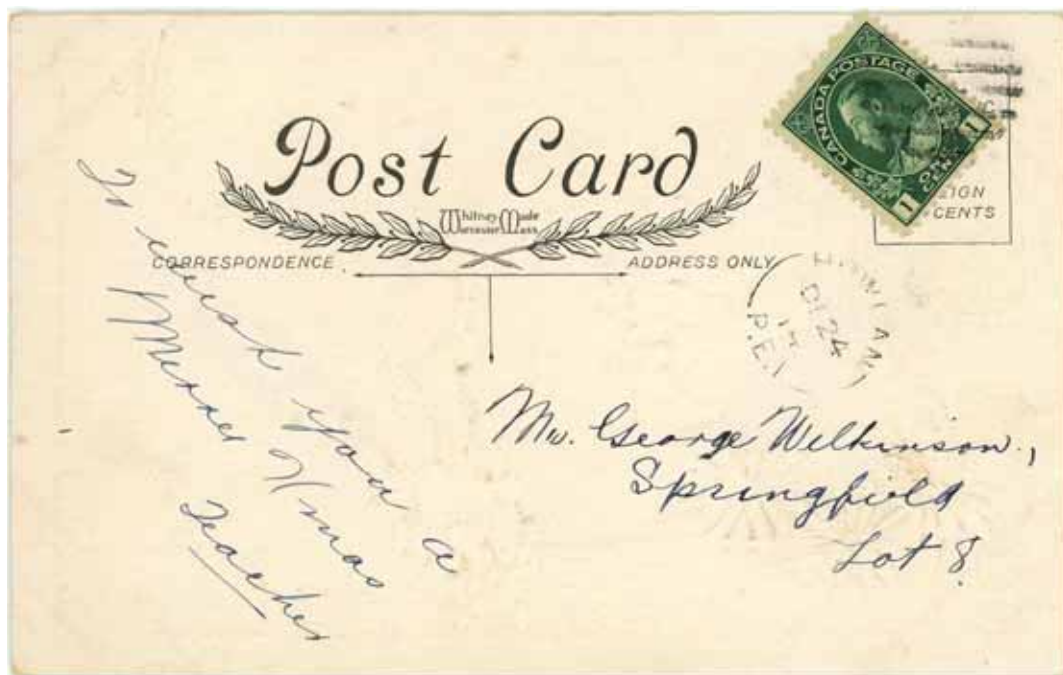 Post Card
Whitney Made
Worcester Mass
CORRESPONDENCE
ADDRESS ONLY
CANADA POSTAGE
1 ONE CENT 1
CENTS
DE 24
P.E.I
To wish you a
Merrie Xmas
Teacher
Mr. George Wilkinson,
Springfield
Lot 8.